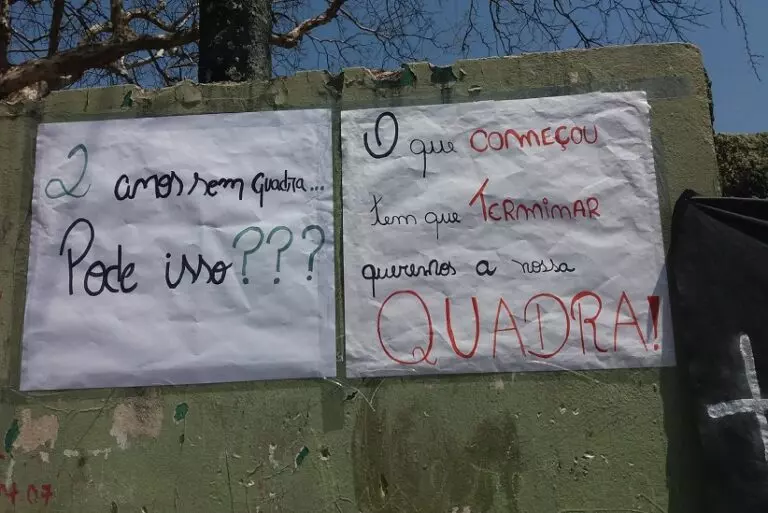 2 anos sem quadra...
Pode isso???
O que COMEÇOU
tem que TERMINAR
queremos a nossa
QUADRA!